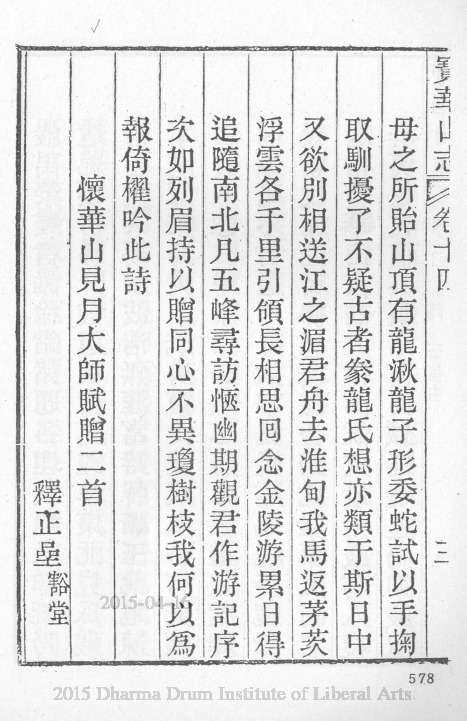 寶華山志 卷十四 三
母之所貽山頂有龍湫龍子形委蛇試以手掬
取馴擾了不疑古者豢龍氏想亦類于斯日中
又欲別相送江之湄君舟去淮甸我馬返茅茨
浮雲各千里引領長相思囘念金陵游累日得
追隨南北凡五峰尋訪愜幽期觀君作游記序
次如列眉持以贈同心不異瓊樹枝我何以爲
報倚櫂吟此詩
懷華山見月大師賦贈二首
釋正嵒豁堂
2015-04-16
578
2015 Dharma Drum Institute of Liberal Arts